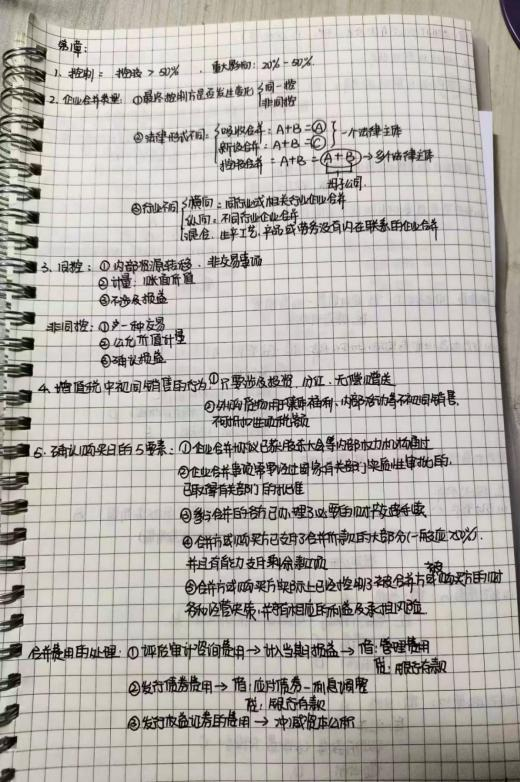 第一章:
1、控制: 控股 > 50%、重大影响: 20% - 50%.
2. 企业合并类型: ①最终控制方是否发生变化 同一控
非同控
②法律形式不同: 吸收合并: A+B=Ⓐ
新设合并: A+B=Ⓒ 一个法律主体
控股合并: A+B=(A+B) → 多个法律主体
母子公司.
③行业不同 横向: 同行业或相关行业企业合并
纵向: 不同行业企业合并
混合: 生产工艺、产品或劳务没有内在联系的企业合并
3、同控: ①内部资源转移、非交易事项
②计量: 账面价值
③不涉及损益
非同控: ①是一种交易
②公允价值计量
③确认损益
4、增值税中视同销售的行为 ①只要涉及投资、分红、无偿赠送
②外购货物用于集体福利、内部活动等不视同销售,
不可抵扣进项税额
5. 确认购买日的5要素: ①企业合并协议已获股东大会等内部权力机构通过
②企业合并事项需要经过国家有关部门实质性审批的,
已取得有关部门的批准
③参与合并的各方已办理了必要的财产交接手续
④合并方或购买方已支付了合并价款的大部分(一般应≥50%).
并且有能力支付剩余款项
⑤合并方或购买方实际上已经控制了被合并方或被购买方的财
务和经营政策, 并享有相应的利益及承担风险
合并费用的处理: ①评估审计咨询费用 → 计入当期损益 → 借: 管理费用
贷: 银行存款
②发行债券费用 → 借: 应付债券-利息调整
贷: 银行存款
③发行权益证券的费用 → 冲减资本公积